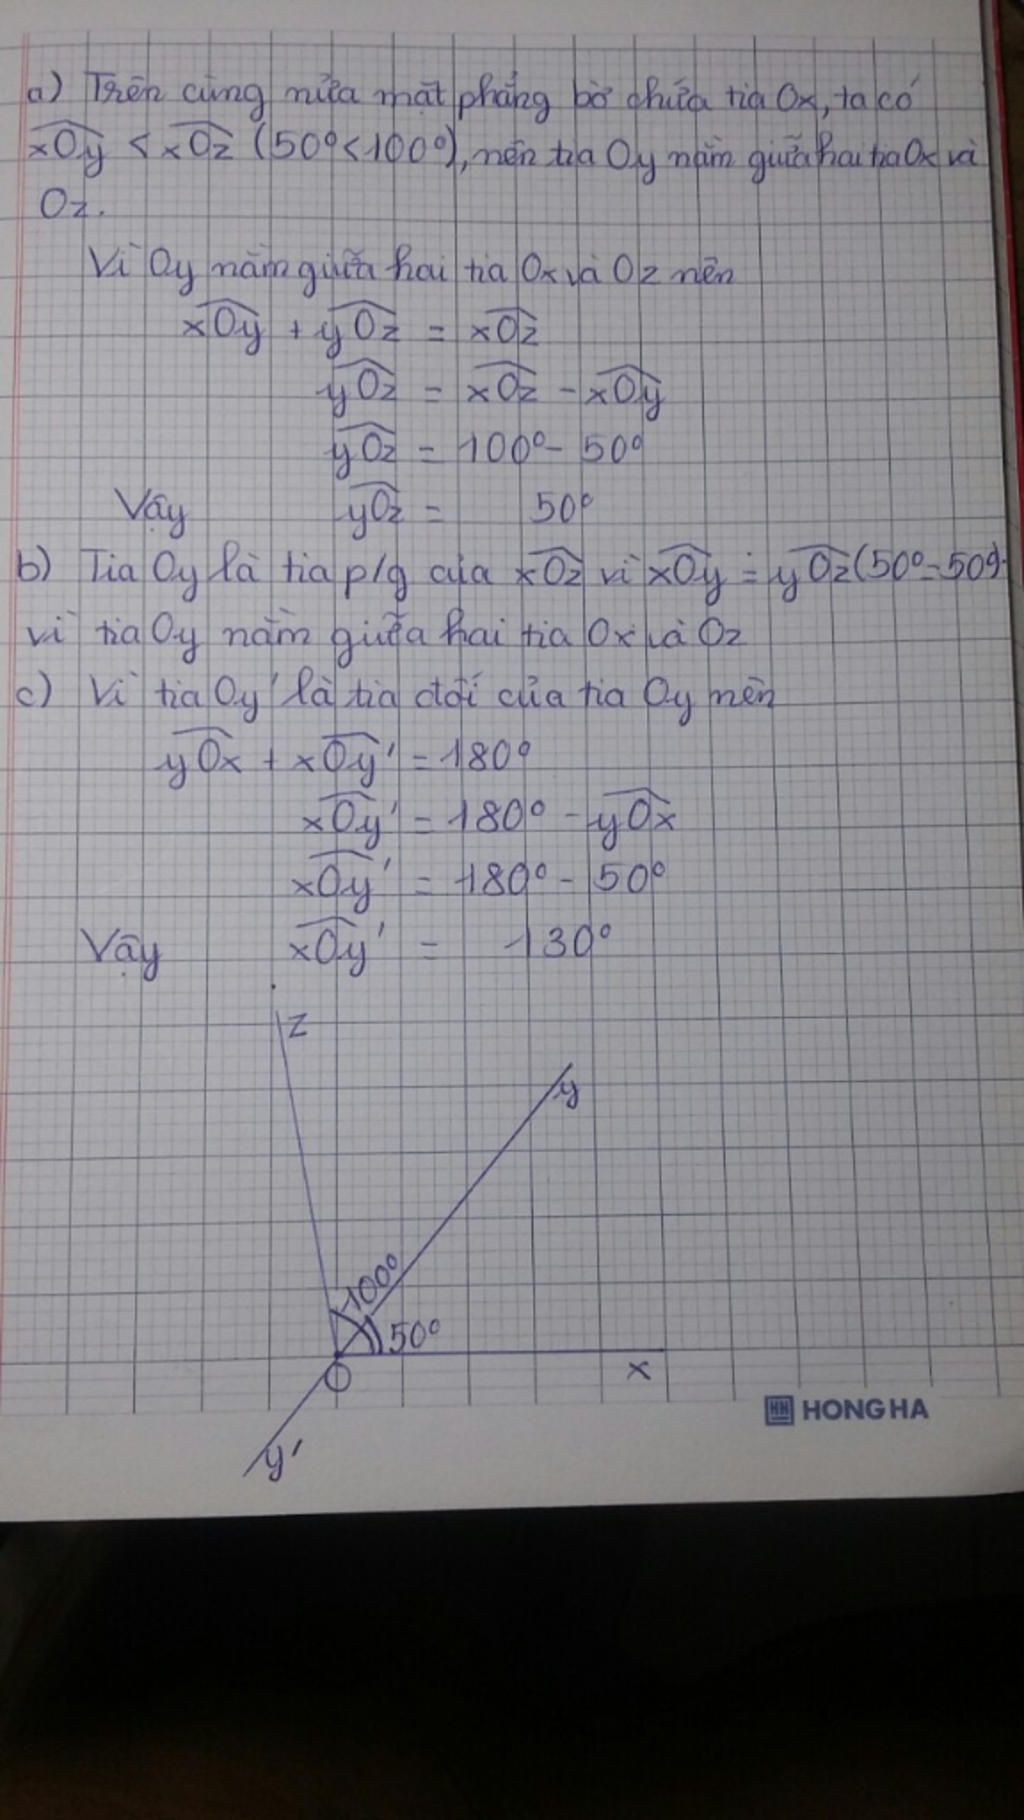 a) Trên cùng nửa mặt phẳng bờ chứa tia Ox, ta có
xOy < xOz (50° < 100°), nên tia Oy nằm giữa hai tia Ox và
Oz.
Vì Oy nằm giữa hai tia Ox và Oz nên
xOy + yOz = xOz
yOz = xOz - xOy
yOz = 100° - 50°
Vậy yOz = 50°
b) Tia Oy là tia p/g của xOz vì xOy = yOz (50° = 50°).
vì tia Oy nằm giữa hai tia Ox và Oz
c) Vì tia Oy' là tia đối của tia Oy nên
yOx + xOy' = 180°
xOy' = 180° - yOx
xOy' = 180° - 50°
Vậy xOy' = 130°
z
y
100°
50°
O
x
HH HONG HA
y'